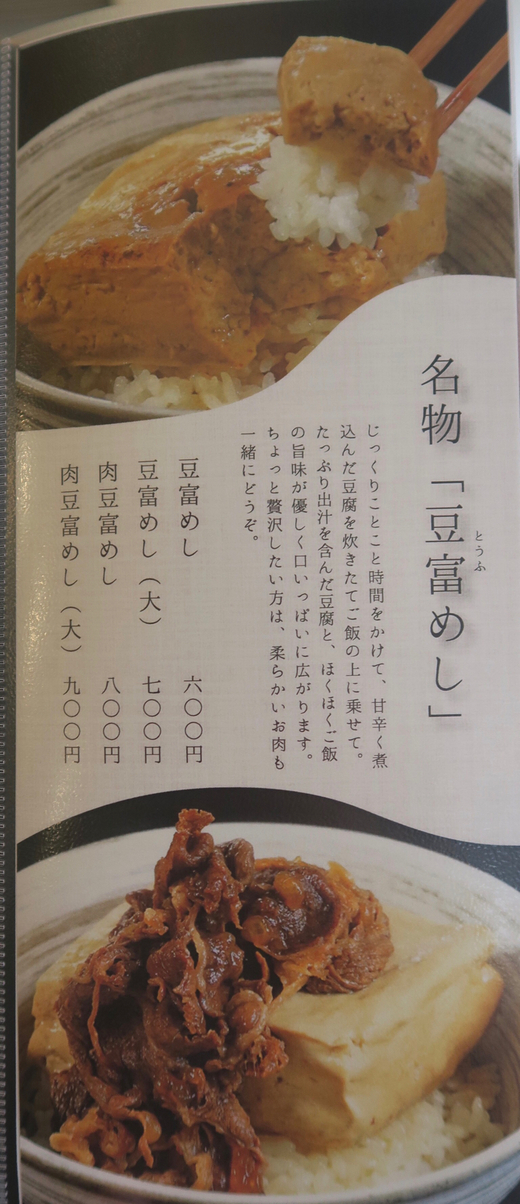 名物「豆富めし」
とうふ
じっくりことこと時間をかけて、甘辛く煮
込んだ豆腐を炊きたてご飯の上に乗せて。
たっぷり出汁を含んだ豆腐と、ほくほくご飯
の旨味が優しく口いっぱいに広がります。
ちょっと贅沢したい方は、柔らかいお肉も
一緒にどうぞ。
豆富めし 六〇〇円
豆富めし（大） 七〇〇円
肉豆富めし 八〇〇円
肉豆富めし（大） 九〇〇円